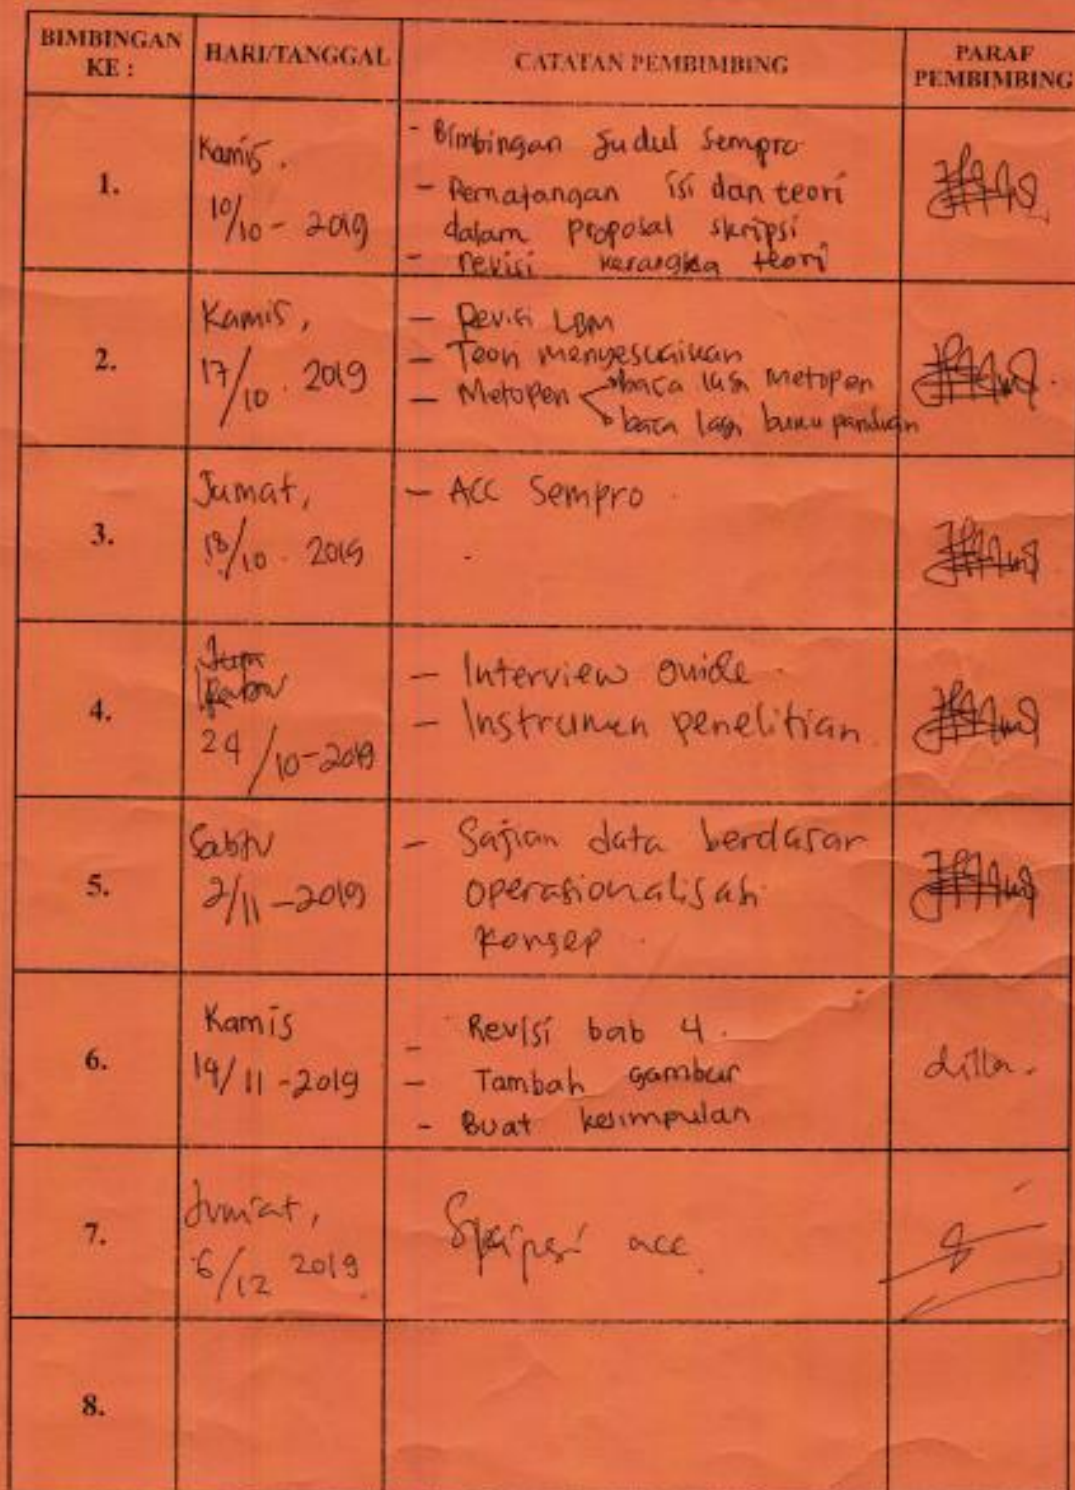 BIMBINGAN KE :
HARI/TANGGAL
CATATAN PEMBIMBING
PARAF PEMBIMBING
1.
Kamis,
10/10 - 2019
- Bimbingan Judul Sempro
- Pematangan isi dan teori
dalam proposal skripsi
- revisi kerangka teori
2.
Kamis,
17/10 . 2019
- Revisi LBM
- Teori menyesuaikan
- Metopen baca lagi metopen
baca lagi buku panduan
3.
Jumat,
18/10 . 2019
- ACC Sempro
4.
24/10-2019
- Interview Guide
- Instrumen penelitian
5.
Sabtu
2/11 - 2019
- Sajian data berdasar
operasionalisasi
konsep
6.
Kamis
14/11 - 2019
- Revisi bab 4
- Tambah gambar
- Buat kesimpulan
dilla.
7.
Jumat,
6/12 2019
Skripsi acc
8.